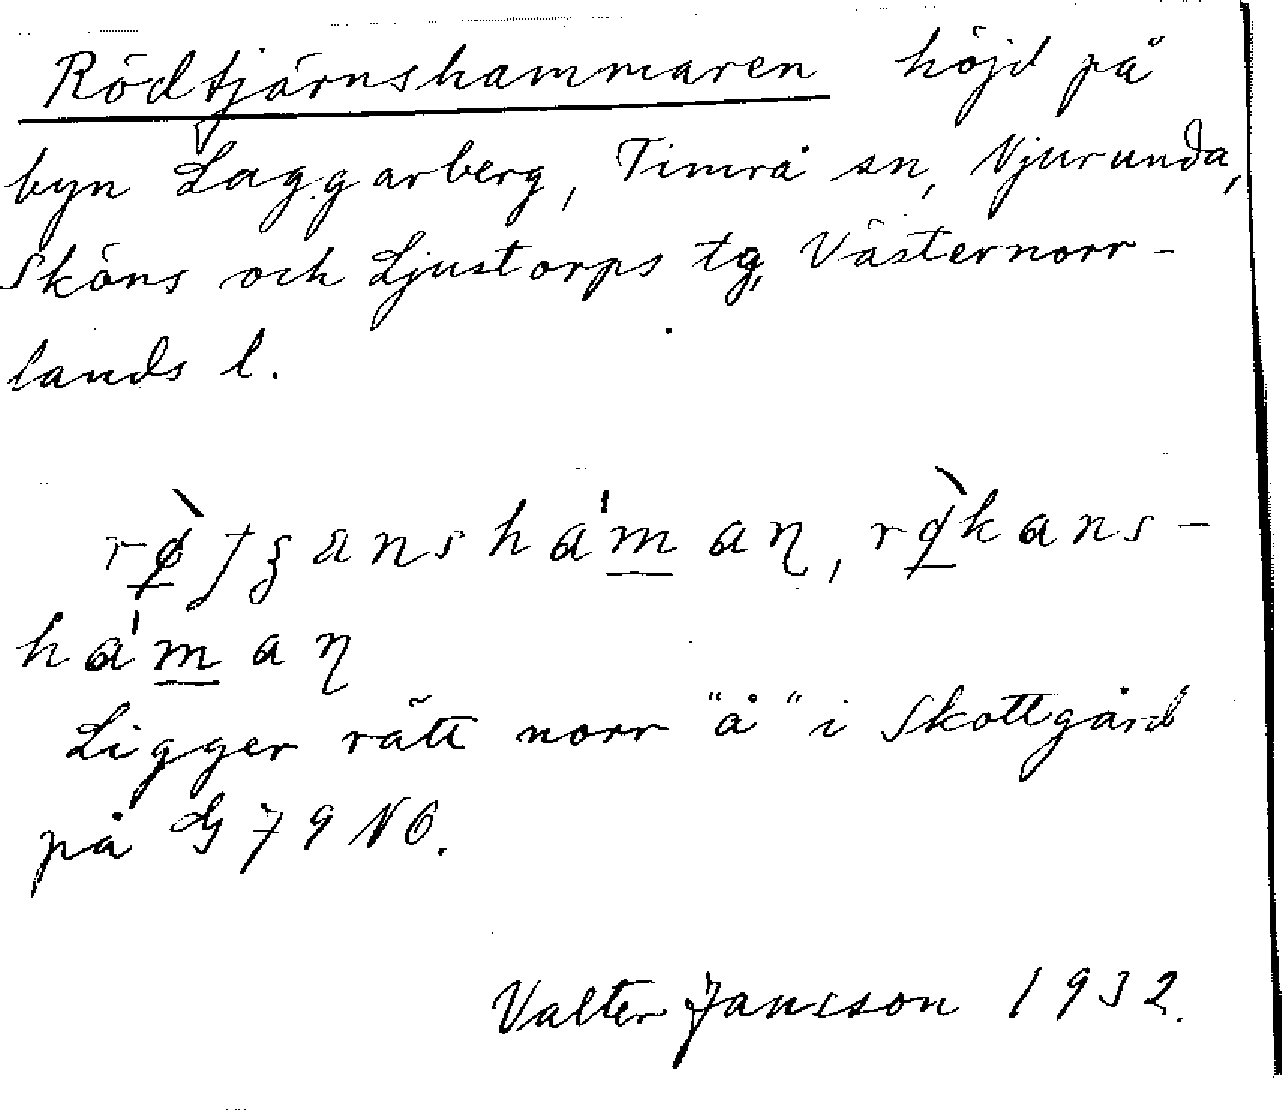 Rödtjärnshammaren höjd på
byn Laggarberg, Timrå sn, Njurunda,
Sköns och Ljustorps tg, Västernorr-
lands l.
Ligger rätt norr "å" i Skottgård
på G 79 NO.
Valter Jansson 1932.